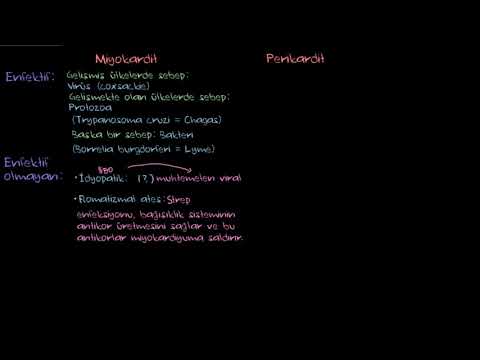 Miyokardit Perikardit
Enfektif: Gelişmiş ülkelerde sebep:
Virüs (coxsackie)
Gelişmekte olan ülkelerde sebep:
Protozoa
(Trypanosoma cruzi = Chagas)
Başka bir sebep: Bakteri
(Borrelia burgdorferi = Lyme)
Enfektif
olmayan:
%80
• İdyopatik: (?) muhtemelen viral
• Romatizmal ateş: Strep
enfeksiyonu, bağışıklık sisteminin
antikor üretmesini sağlar ve bu
antikorlar miyokardiyuma saldırır.